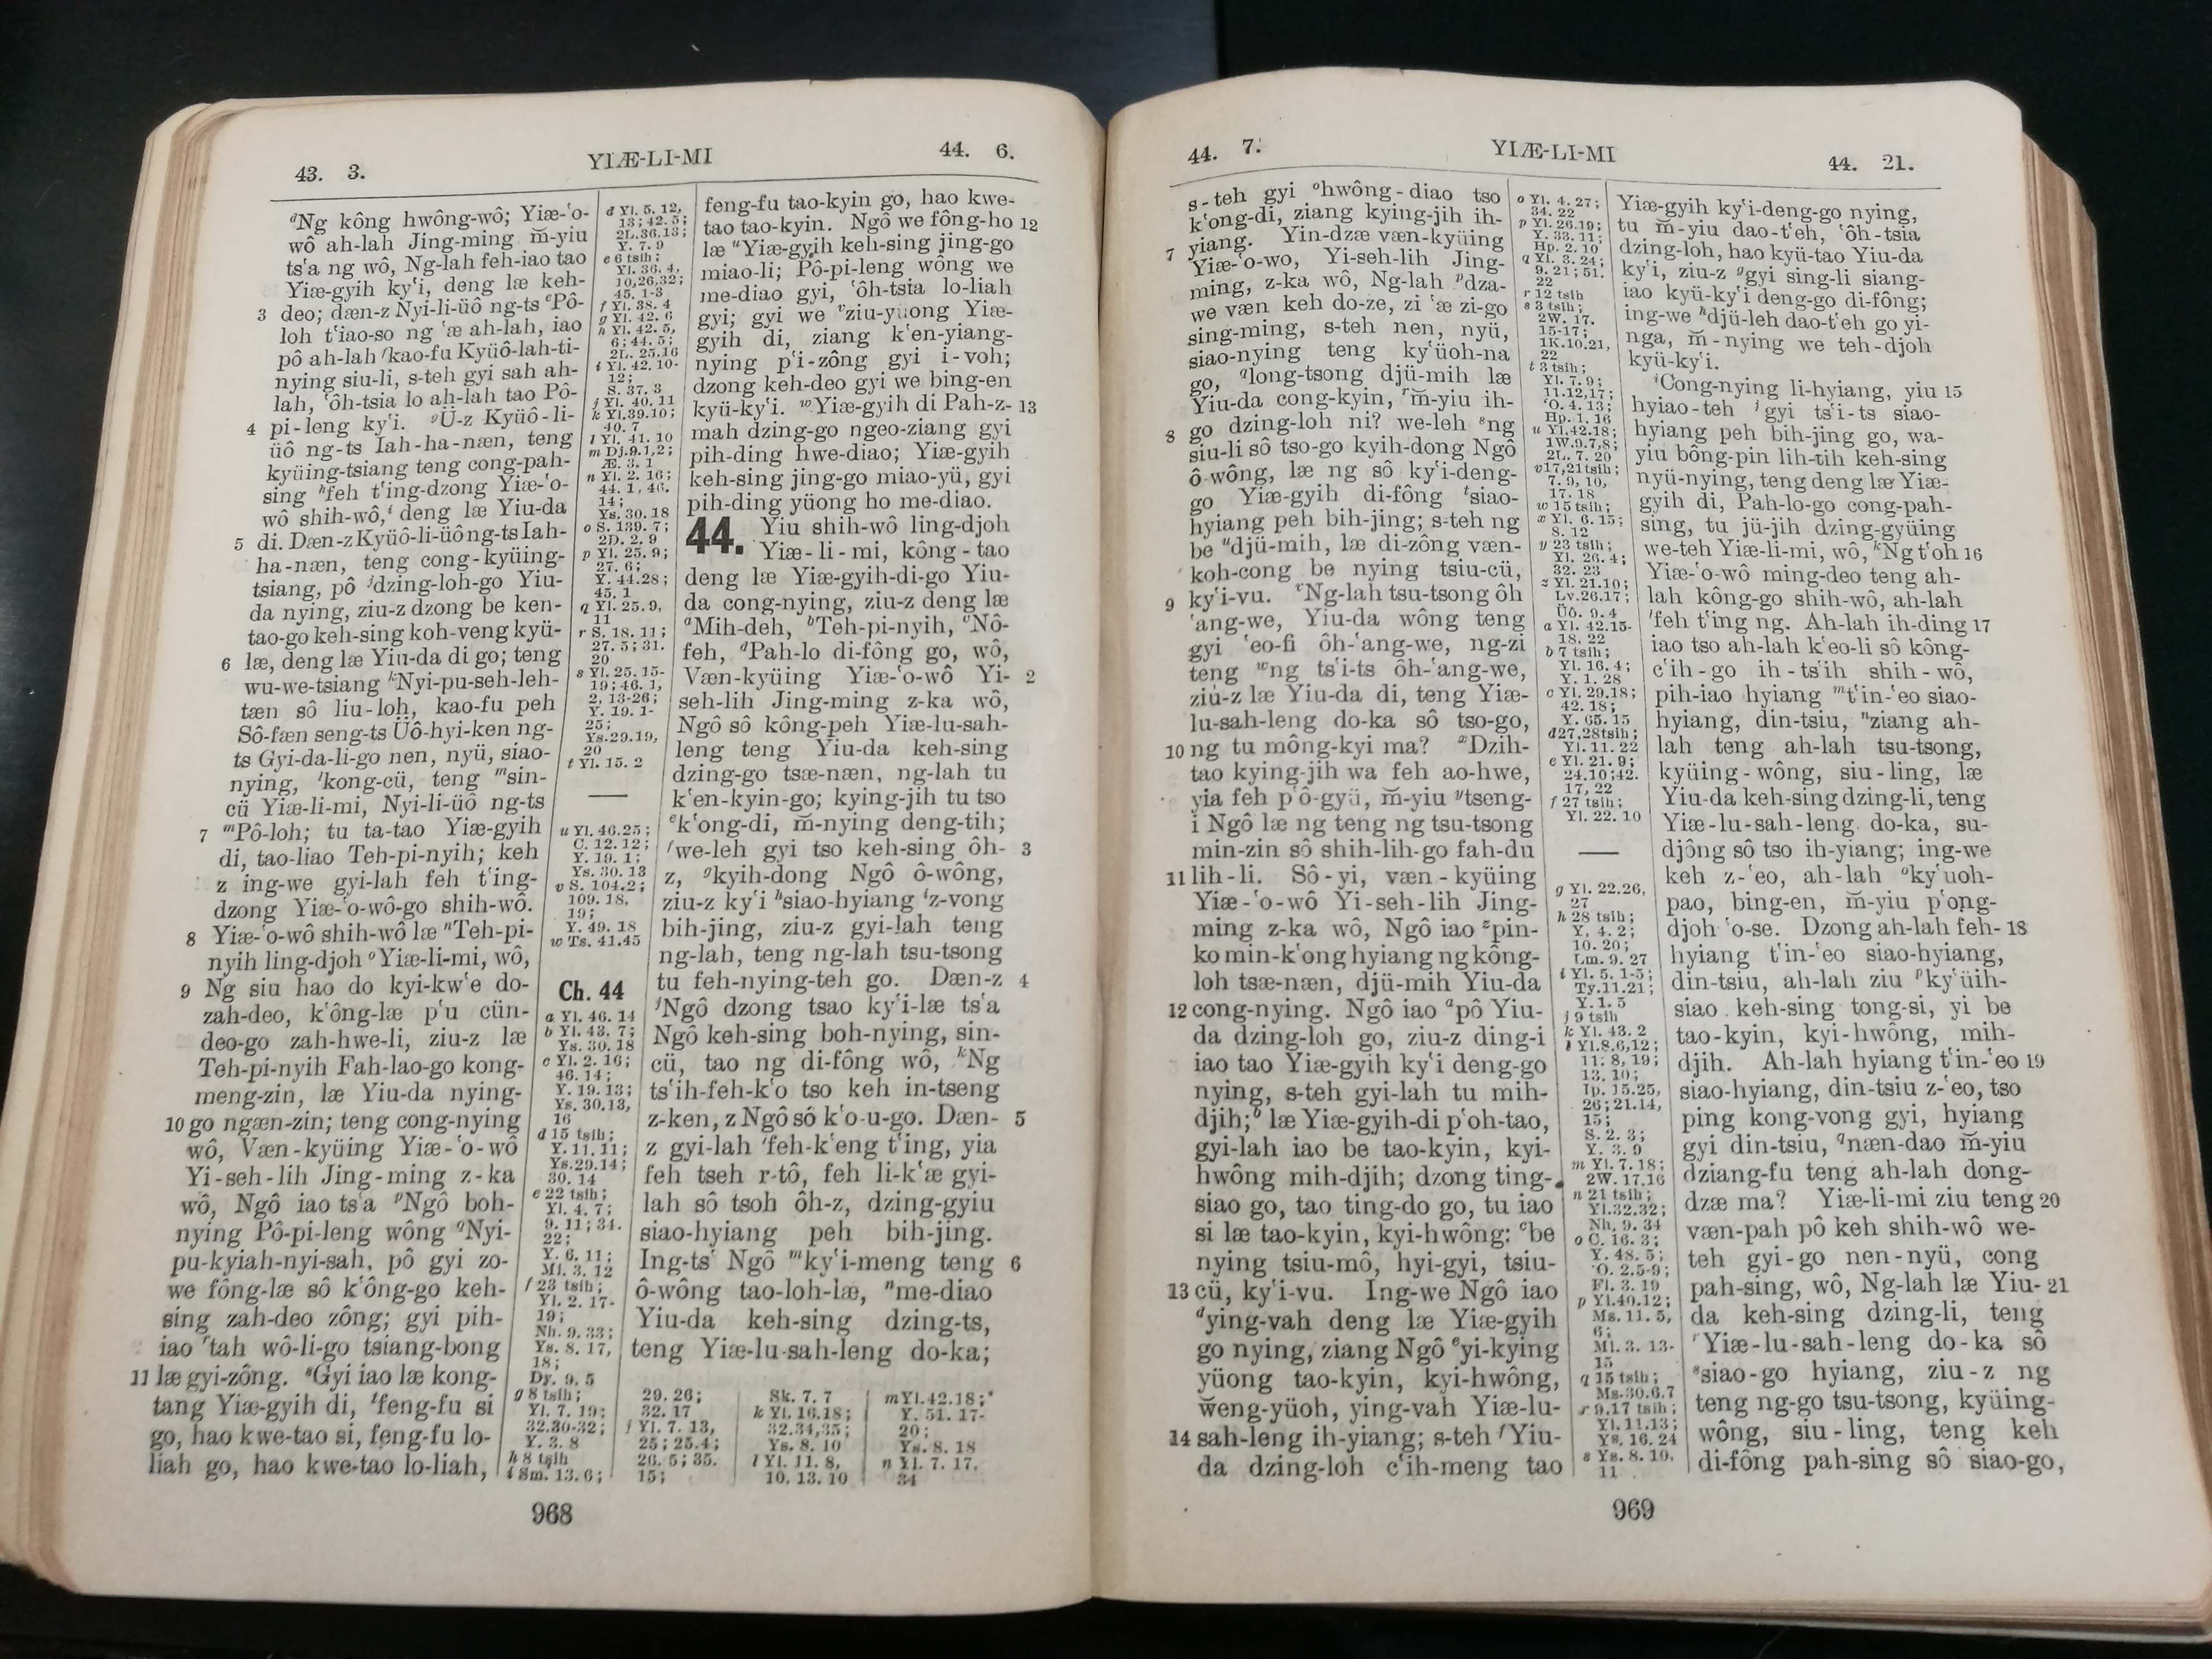 43. 3.
YIÆ-LI-MI
44. 6.
ᵈNg kông hwông-wô; Yiæ-ʻo-
wô ah-lah Jing-ming m̆-yiu
tsʻa ng wô, Ng-lah feh-iao tao
Yiæ-gyih kyʻi, deng læ keh-
3 deo; dæn-z Nyi-li-üô ng-ts ᵉPô-
loh tʻiao-so ng ʻæ ah-lah, iao
pô ah-lah ᶠkao-fu Kyüô-lah-ti-
nying siu-li, s-teh gyi sah ah-
lah, ʻôh-tsia lo ah-lah tao Pô-
4 pi-leng kyʻi. ᵍÜ-z Kyüô-li-
üô ng-ts Iah-ha-næn, teng
kyüing-tsiang teng cong-pah-
sing ʰfeh tʻing-dzong Yiæ-ʻo-
wô shih-wô,ⁱ deng læ Yiu-da
5 di. Dæn-z Kyüô-li-üô ng-ts Iah-
ha-næn, teng cong-kyüing-
tsiang, pô ʲdzing-loh-go Yiu-
da nying, ziu-z dzong be ken-
tao-go keh-sing koh-veng kyü-
6 læ, deng læ Yiu-da di go; teng
wu-we-tsiang ᵏNyi-pu-seh-leh-
tæn sô liu-loh, kao-fu peh
Sô-fæn seng-ts Üô-hyi-ken ng-
ts Gyi-da-li-go nen, nyü, siao-
nying, ˡkong-cü, teng ᵐsin-
cü Yiæ-li-mi, Nyi-li-üô ng-ts
7 ᵐPô-loh; tu ta-tao Yiæ-gyih
di, tao-liao Teh-pi-nyih; keh
z ing-we gyi-lah feh tʻing-
dzong Yiæ-ʻo-wô-go shih-wô.
8 Yiæ-ʻo-wô shih-wô læ ⁿTeh-pi-
nyih ling-djoh ᵒYiæ-li-mi, wô,
9 Ng siu hao do kyi-kwʻe do-
zah-deo, kʻông-læ pʻu cün-
deo-go zah-hwe-li, ziu-z læ
Teh-pi-nyih Fah-lao-go kong-
meng-zin, læ Yiu-da nying-
10 go ngæn-zin; teng cong-nying
wô, Væn-kyüing Yiæ-ʻo-wô
Yi-seh-lih Jing-ming z-ka
wô, Ngô iao tsʻa ᵖNgô boh-
nying Pô-pi-leng wông ᵍNyi-
pu-kyiah-nyi-sah, pô gyi zo-
we fông-læ sô kʻông-go keh-
sing zah-deo zông; gyi pih-
iao ʳtah wô-li-go tsiang-bong
11 læ gyi-zông. ˢGyi iao læ kong-
tang Yiæ-gyih di, ᵗfeng-fu si
go, hao kwe-tao si, feng-fu lo-
liah go, hao kwe-tao lo-liah,
d Yl. 5. 12,
13; 42. 5;
2L.36.13;
Y. 7. 9
e 6 tsih;
Yl. 36. 4,
10,26,32;
45. 1-3
f Yl. 38. 4
g Yl. 42. 6
h Yl. 42. 5,
6; 44. 5;
2L. 25.16
i Yl. 42. 10-
12;
S. 37. 3
j Yl. 40. 11
k Yl.39.10;
40. 7
l Yl. 41. 10
m Dj.9.1,2;
Æ. 3. 1
n Yl. 2. 16;
44. 1, 46.
14;
Ys. 30. 18
o S. 139. 7;
2D. 2. 9
p Yl. 25. 9;
27. 6;
Y. 44.28;
45. 1
q Yl. 25. 9,
11
r S. 18. 11;
27. 5; 31.
20
s Yl. 25. 15-
19; 46. 1,
2, 13-26;
Y. 19. 1-
25;
Ys.29.19,
20
t Yl. 15. 2
u Yl. 46.25;
C. 12. 12;
Y. 19. 1;
Ys. 30. 13
v S. 104.2;
109. 18,
19;
Y. 49. 18
w Ts. 41.45
Ch. 44
a Yl. 46. 14
b Yl. 43. 7;
Ys. 30. 18
c Yl. 2. 16;
46. 14;
Y. 19. 13;
Ys. 30.13,
16
d 15 tsih;
Y. 11. 11;
Ys.29.14;
30. 14
e 22 tsih;
Yl. 4. 7;
9. 11; 34.
22;
Y. 6. 11;
Ml. 3. 12
f 23 tsih;
Yl. 2. 17-
19;
Nh. 9. 33;
Ys. 8. 17,
18;
Dy. 9. 5
g 8 tsih;
Yl. 7. 19;
32.30-32;
Y. 3. 8
h 8 tsih
i Sm. 13. 6;
feng-fu tao-kyin go, hao kwe-
tao tao-kyin. Ngô we fông-ho 12
læ ᵘYiæ-gyih keh-sing jing-go
miao-li; Pô-pi-leng wông we
me-diao gyi, ʻôh-tsia lo-liah
gyi; gyi we ᵛziu-yüong Yiæ-
gyih di, ziang kʻen-yiang-
nying pʻi-zông gyi i-voh;
dzong keh-deo gyi we bing-en
kyü-kyʻi. ʷYiæ-gyih di Pah-z- 13
mah dzing-go ngeo-ziang gyi
pih-ding hwe-diao; Yiæ-gyih
keh-sing jing-go miao-yü, gyi
pih-ding yüong ho me-diao.
44. Yiu shih-wô ling-djoh
Yiæ-li-mi, kông-tao
deng læ Yiæ-gyih-di-go Yiu-
da cong-nying, ziu-z deng læ
ᵃMih-deh, ᵇTeh-pi-nyih, ᶜNô-
feh, ᵈPah-lo di-fông go, wô,
Væn-kyüing Yiæ-ʻo-wô Yi- 2
seh-lih Jing-ming z-ka wô,
Ngô sô kông-peh Yiæ-lu-sah-
leng teng Yiu-da keh-sing
dzing-go tsæ-næn, ng-lah tu
kʻen-kyin-go; kying-jih tu tso
ᵉkʻong-di, m̆-nying deng-tih;
ᶠwe-leh gyi tso keh-sing ôh- 3
z, ᵍkyih-dong Ngô ô-wông,
ziu-z kyʻi ʰsiao-hyiang ⁱz-vong
bih-jing, ziu-z gyi-lah teng
ng-lah, teng ng-lah tsu-tsong
tu feh-nying-teh go. Dæn-z 4
ʲNgô dzong tsao kyʻi-læ tsʻa
Ngô keh-sing boh-nying, sin-
cü, tao ng di-fông wô, ᵏNg
tsʻih-feh-kʻo tso keh in-tseng
z-ken, z Ngô sô kʻo-u-go. Dæn- 5
z gyi-lah ˡfeh-kʻeng tʻing, yia
feh tseh r-tô, feh li-kʻæ gyi-
lah sô tsoh ôh-z, dzing-gyiu
siao-hyiang peh bih-jing.
Ing-tsʻ Ngô ᵐkyʻi-meng teng 6
ô-wông tao-loh-læ, ⁿme-diao
Yiu-da keh-sing dzing-ts,
teng Yiæ-lu-sah-leng do-ka;
29. 26;
32. 17
j Yl. 7. 13,
25; 25.4;
26. 5; 35.
15;
Sk. 7. 7
k Yl. 16.18;
32.34,35;
Ys. 8. 10
l Yl. 11. 8,
10, 13. 10
m Yl.42.18;
Y. 51. 17-
20;
Ys. 8. 18
n Yl. 7. 17,
34
968
44. 7.
YIÆ-LI-MI
44. 21.
s-teh gyi ᵒhwông-diao tso
kʻong-di, ziang kying-jih ih-
yiang. Yin-dzæ væn-kyüing
7 Yiæ-ʻo-wo, Yi-seh-lih Jing-
ming, z-ka wô, Ng-lah ᵖdza-
we væn keh do-ze, zi ʻæ zi-go
sing-ming, s-teh nen, nyü,
siao-nying teng kyʻüoh-na
go, ᵍlong-tsong djü-mih læ
Yiu-da cong-kyin, ʳm̆-yiu ih-
go dzing-loh ni? we-leh ˢng
8 siu-li sô tso-go kyih-dong Ngô
ô-wông, læ ng sô kyʻi-deng-
go Yiæ-gyih di-fông ᵗsiao-
hyiang peh bih-jing; s-teh ng
be ᵘdjü-mih, læ di-zông væn-
koh-cong be nying tsiu-cü,
9 kyʻi-vu. ᵛNg-lah tsu-tsong ôh
ʻang-we, Yiu-da wông teng
gyi ʻeo-fi ôh-ʻang-we, ng-zi
teng ʷng tsʻi-ts ôh-ʻang-we,
ziu-z læ Yiu-da di, teng Yiæ-
lu-sah-leng do-ka sô tso-go,
10 ng tu mông-kyi ma? ˣDzih-
tao kying-jih wa feh ao-hwe,
yia feh pʻô-gyü, m̆-yiu ʸtseng-
i Ngô læ ng teng ng tsu-tsong
min-zin sô shih-lih-go fah-du
11 lih-li. Sô-yi, væn-kyüing
Yiæ-ʻo-wô Yi-seh-lih Jing-
ming z-ka wô, Ngô iao ᶻpin-
ko min-kʻong hyiang ng kông-
loh tsæ-næn, djü-mih Yiu-da
12 cong-nying. Ngô iao ᵃpô Yiu-
da dzing-loh go, ziu-z ding-i
iao tao Yiæ-gyih kyʻi deng-go
nying, s-teh gyi-lah tu mih-
djih;ᵇ læ Yiæ-gyih-di pʻoh-tao,
gyi-lah iao be tao-kyin, kyi-
hwông mih-djih; dzong ting-
siao go, tao ting-do go, tu iao
si læ tao-kyin, kyi-hwông: ᶜbe
nying tsiu-mô, hyi-gyi, tsiu-
13 cü, kyʻi-vu. Ing-we Ngô iao
ᵈying-vah deng læ Yiæ-gyih
go nying, ziang Ngô ᵉyi-kying
yüong tao-kyin, kyi-hwông,
w̆eng-yüoh, ying-vah Yiæ-lu-
14 sah-leng ih-yiang; s-teh ᶠYiu-
da dzing-loh cʻih-meng tao
o Yl. 4. 27;
34. 22
p Yl.26.19;
Y. 33. 11;
Hp. 2. 10
q Yl. 3. 24;
9. 21; 51.
22
r 12 tsih
s 3 tsih;
2W. 17.
15-17;
1K.10.21,
22
t 3 tsih;
Yl. 7. 9;
11.12,17;
ʻO. 4. 13;
Hp. 1. 16
u Yl.42.18;
1W.9.7,8;
2L. 7. 20
v 17,21 tsih;
7. 9, 10,
17. 18
w 15 tsih;
x Yl. 6. 15;
S. 12
y 23 tsih;
Yl. 26. 4;
32. 23
z Yl. 21.10;
Lv.26.17;
Üô. 9. 4
a Yl. 42.15-
18, 22
b 7 tsih;
Yl. 16. 4;
Y. 1. 28
c Yl. 29.18;
42. 18;
Y. 65. 15
d 27,28 tsih;
Yl. 11. 22
e Yl. 21. 9;
24.10;42.
17, 22
f 27 tsih;
Yl. 22. 10
g Yl. 22.26,
27
h 28 tsih;
Y. 4. 2;
10. 20;
Lm. 9. 27
i Yl. 5. 1-5;
Ty.11.21;
Y. 1. 5
j 9 tsih
k Yl. 43. 2
l Yl.8.6,12;
11. 8, 19;
13. 10;
Ip. 15.25,
26; 21.14,
15;
S. 2. 3;
Y. 3. 9
m Yl. 7. 18;
2W. 17.16
n 21 tsih;
Yl.32.32;
Nh. 9. 34
o C. 16. 3;
Y. 48. 5;
ʻO. 2.5-9;
Fl. 3. 19
p Yl.40.12;
Ms. 11. 5,
6;
Ml. 3. 13-
15
q 15 tsih;
Ms.30.6.7
r 9.17 tsih;
Yl. 11.13;
Ys. 16. 24
s Ys. 8. 10,
11
Yiæ-gyih kyʻi-deng-go nying,
tu m̆-yiu dao-tʻeh, ʻôh-tsia
dzing-loh, hao kyü-tao Yiu-da
kyʻi, ziu-z ᵍgyi sing-li siang-
iao kyü-kyʻi deng-go di-fông;
ing-we ʰdjü-leh dao-tʻeh go yi-
nga, m̆-nying we teh-djoh
kyü-kyʻi.
ⁱCong-nying li-hyiang, yiu 15
hyiao-teh ʲgyi tsʻi-ts siao-
hyiang peh bih-jing go, wa-
yiu bông-pin lih-tih keh-sing
nyü-nying, teng deng læ Yiæ-
gyih di, Pah-lo-go cong-pah-
sing, tu jü-jih dzing-gyüing
we-teh Yiæ-li-mi, wô, ᵏNg tʻoh 16
Yiæ-ʻo-wô ming-deo teng ah-
lah kông-go shih-wô, ah-lah
ˡfeh tʻing ng. Ah-lah ih-ding 17
iao tso ah-lah kʻeo-li sô kông-
cʻih-go ih-tsʻih shih-wô,
pih-iao hyiang ᵐtʻin-ʻeo siao-
hyiang, din-tsiu, ⁿziang ah-
lah teng ah-lah tsu-tsong,
kyüing-wông, siu-ling, læ
Yiu-da keh-sing dzing-li, teng
Yiæ-lu-sah-leng do-ka, su-
djông sô tso ih-yiang; ing-we
keh z-ʻeo, ah-lah ᵒkyʻuoh-
pao, bing-en, m̆-yiu pʻong-
djoh ʻo-se. Dzong ah-lah feh- 18
hyiang tʻin-ʻeo siao-hyiang,
din-tsiu, ah-lah ziu ᵖkyʻüih-
siao keh-sing tong-si, yi be
tao-kyin, kyi-hwông, mih-
djih. Ah-lah hyiang tʻin-ʻeo 19
siao-hyiang, din-tsiu z-ʻeo, tso
ping kong-vong gyi, hyiang
gyi din-tsiu, ᵍnæn-dao m̆-yiu
dziang-fu teng ah-lah dong-
dzæ ma? Yiæ-li-mi ziu teng 20
væn-pah pô keh shih-wô we-
teh gyi-go nen-nyü, cong
pah-sing, wô, Ng-lah læ Yiu- 21
da keh-sing dzing-li, teng
ʳYiæ-lu-sah-leng do-ka sô
ˢsiao-go hyiang, ziu-z ng
teng ng-go tsu-tsong, kyüing-
wông, siu-ling, teng keh
di-fông pah-sing sô siao-go,
969